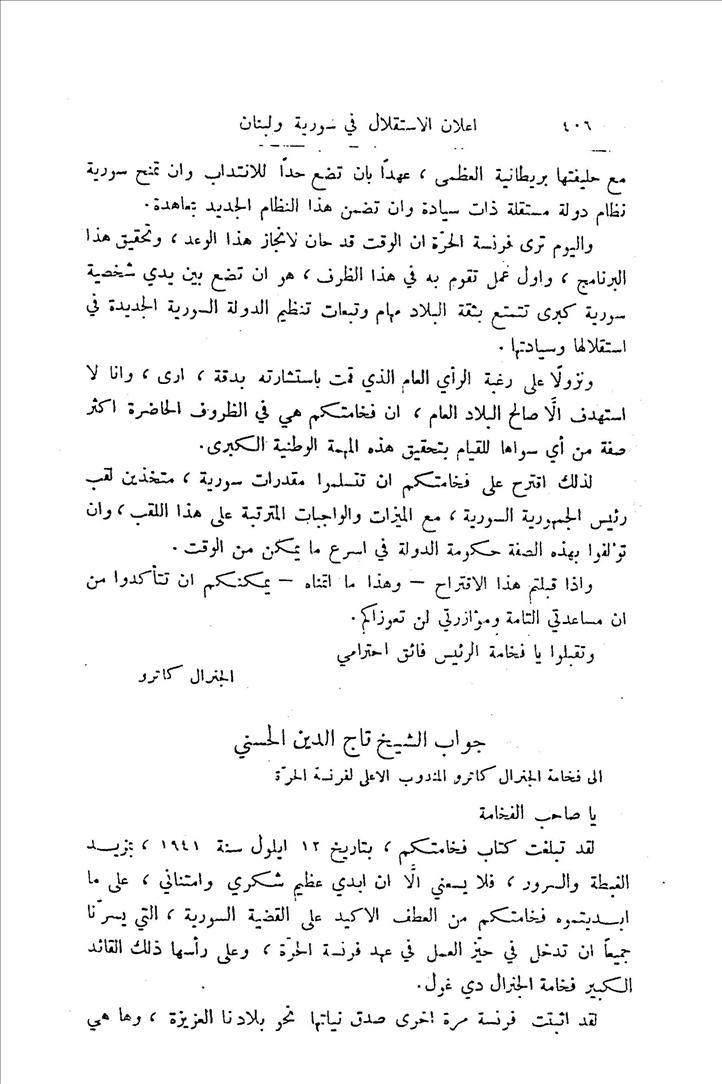 ٤٠٦ اعلان الاستقلال في سورية ولبنان
مع حليفتها بريطانية العظمى ، عهداً بان تضع حداً للانتداب وان تمنح سورية
نظام دولة مستقلة ذات سيادة وان تضمن هذا النظام الجديد بمعاهدة.
واليوم ترى فرنسة الحرّة ان الوقت قد حان لانجاز هذا الوعد ، وتحقيق هذا
البرنامج ، واول عمل تقوم به في هذا الظرف ، هو ان تضع بين يدي شخصية
سورية كبرى تتمتع بثقة البلاد مهام وتبعات تنظيم الدولة السورية الجديدة في
استقلالها وسيادتها .
ونزولًا على رغبة الرأي العام الذي قمت باستشارته بدقة ، ارى ، وانا لا
استهدف الَّا صالح البلاد العام ، ان فخامتكم هي في الظروف الحاضرة اكثر
صفة من أي سواها للقيام بتحقيق هذه المهمة الوطنية الكبرى.
لذلك اقترح على فخامتكم ان تتسلموا مقدرات سورية ، متخذين لقب
رئيس الجمهورية السورية ، مع الميزات والواجبات المترتبة على هذا اللقب ، وان
تؤلفوا بهذه الصفة حكومة الدولة في اسرع ما يمكن من الوقت .
واذا قبلتم هذا الاقتراح — وهذا ما اتمناه — يمكنكم ان تتأكدوا من
ان مساعدتي التامة ومؤازرتي لن تعوزاكم.
وتقبلوا يا فخامة الرئيس فائق احترامي
الجنرال كاترو
جواب الشيخ تاج الدين الحسني
الى فخامة الجنرال كاترو المندوب الاعلى لفرنسة الحرّة
يا صاحب الفخامة
لقد تبلغت كتاب فخامتكم ، بتاريخ ١٢ ايلول سنة ١٩٤١ ، بمزيد
الغبطة والسرور ، فلا يسعني الَّا ان ابدي عظيم شكري وامتناني ، على ما
ابديتموه فخامتكم من العطف الاكيد على القضية السورية ، التي يسرّنا
جميعاً ان تدخل في حيّز العمل في عهد فرنسة الحرّة ، وعلى رأسها ذلك القائد
الكبير فخامة الجنرال دي غول.
لقد اثبتت فرنسة مرة اخرى صدق نياتها نحو بلادنا العزيزة ، وها هي